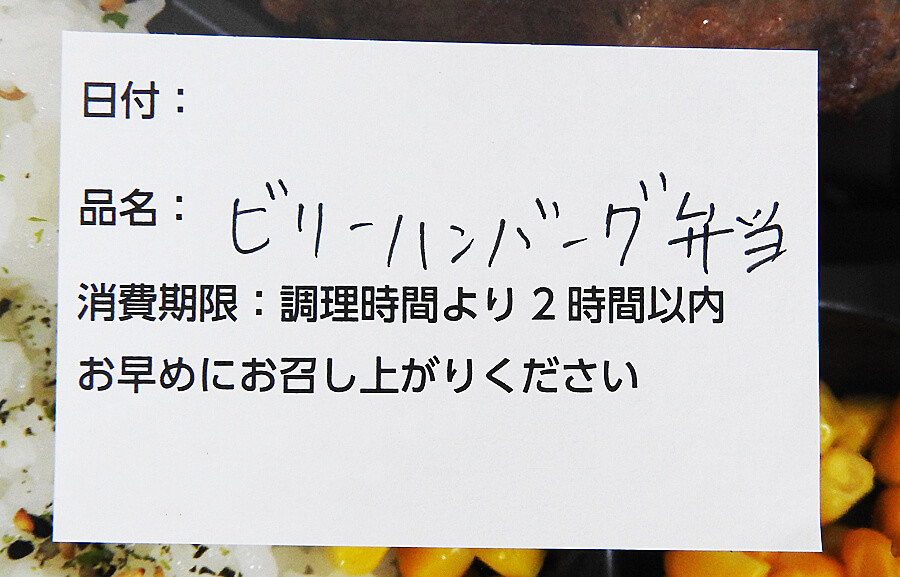 日付：
品名： ビリーハンバーグ弁当
消費期限：調理時間より2時間以内
お早めにお召し上がりください